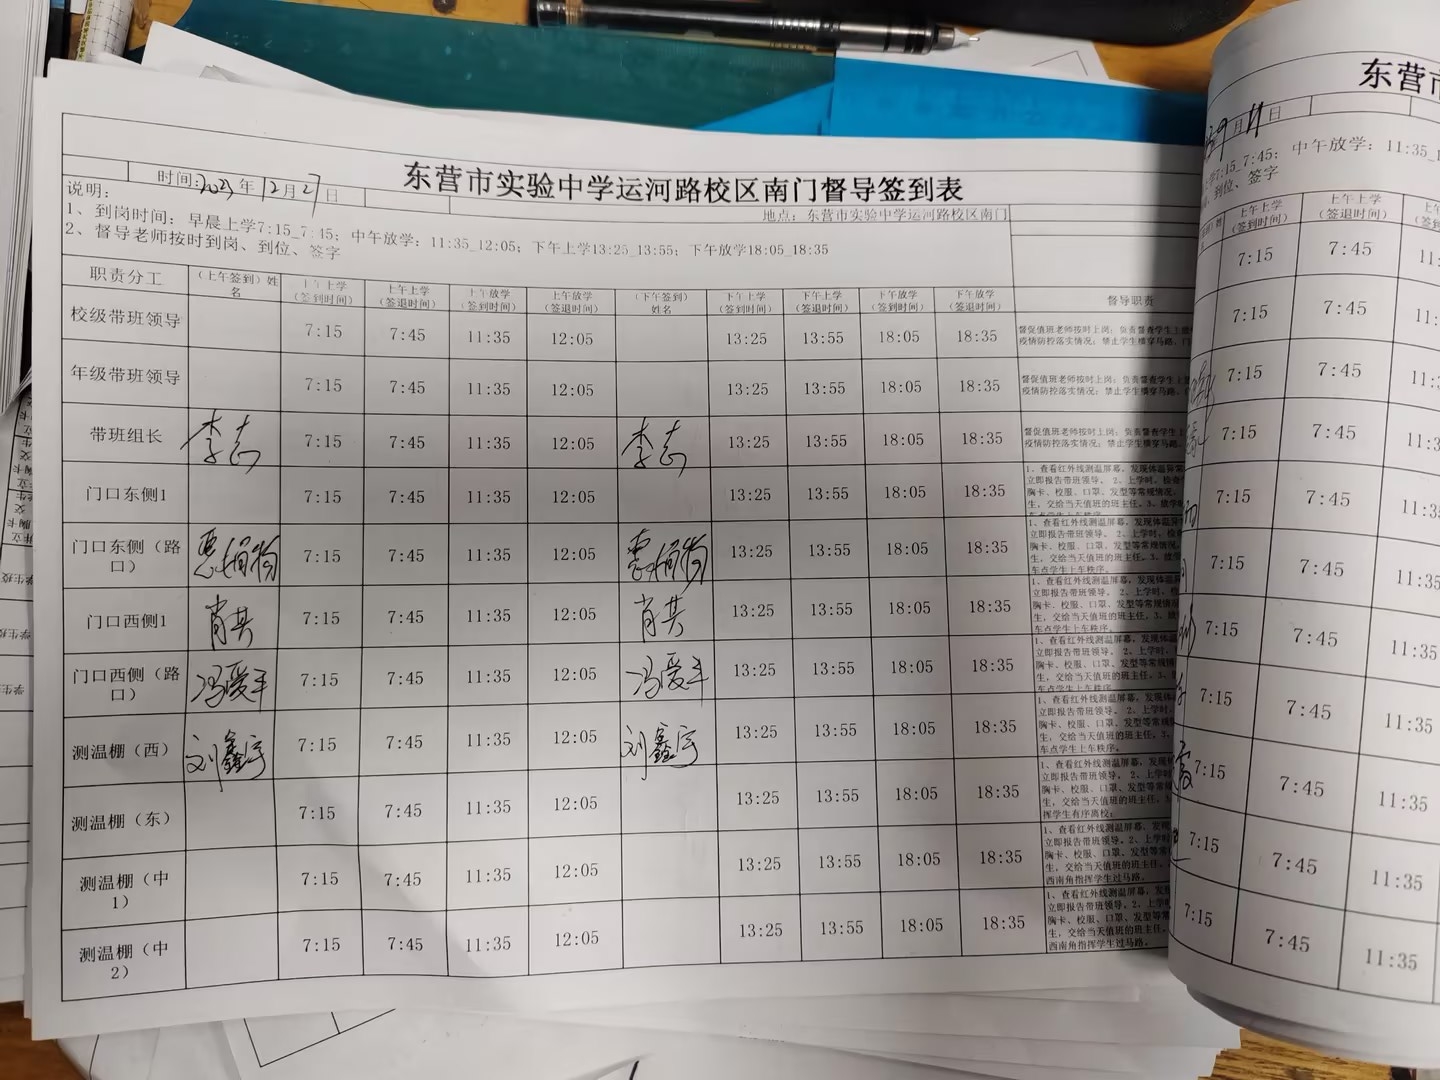 东营市实验中学运河路校区南门督导签到表
时间:2023年12月27日
地点：东营市实验中学运河路校区南门
说明：
1、到岗时间：早晨上学7:15_7:45；中午放学：11:35_12:05；下午上学13:25_13:55；下午放学18:05_18:35
2、督导老师按时到岗、到位、签字
职责分工 （上午签到）姓名 上午上学（签到时间） 上午上学（签退时间） 上午放学（签到时间） 上午放学（签退时间） （下午签到）姓名 下午上学（签到时间） 下午上学（签退时间） 下午放学（签到时间） 下午放学（签退时间） 督导职责
校级带班领导 7:15 7:45 11:35 12:05 13:25 13:55 18:05 18:35
督促值班老师按时上岗；负责督查学生上
疫情防控落实情况；禁止学生横穿马路。
年级带班领导 7:15 7:45 11:35 12:05 13:25 13:55 18:05 18:35
督促值班老师按时上岗；负责督查学生上
疫情防控落实情况；禁止学生横穿马路。
带班组长 李志 7:15 7:45 11:35 12:05 李志 13:25 13:55 18:05 18:35
督促值班老师按时上岗；负责督查学生上
疫情防控落实情况；禁止学生横穿马路。
门口东侧1 7:15 7:45 11:35 12:05 13:25 13:55 18:05 18:35
1、查看红外线测温屏幕，发现体温异常
立即报告带班领导。2、上学时，检查
胸卡、校服、口罩、发型等常规情况。
生，交给当天值班的班主任。3、放学
车点学生上车秩序。
门口东侧（路口） 7:15 7:45 11:35 12:05 13:25 13:55 18:05 18:35
1、查看红外线测温屏幕，发现体温异
立即报告带班领导。2、上学时，检
胸卡、校服、口罩、发型等常规情况
生，交给当天值班的班主任。3、放
车点学生上车秩序。
门口西侧1 肖其 7:15 7:45 11:35 12:05 肖其 13:25 13:55 18:05 18:35
1、查看红外线测温屏幕，发现体温
立即报告带班领导。2、上学时，
胸卡、校服、口罩、发型等常规情
生，交给当天值班的班主任。3、
车点学生上车秩序。
门口西侧（路口） 冯爱军 7:15 7:45 11:35 12:05 冯爱军 13:25 13:55 18:05 18:35
1、查看红外线测温屏幕，发现体
立即报告带班领导。2、上学时，
胸卡、校服、口罩、发型等常规
生，交给当天值班的班主任。3、
车点学生上车秩序。
测温棚（西） 刘鑫宇 7:15 7:45 11:35 12:05 刘鑫宇 13:25 13:55 18:05 18:35
1、查看红外线测温屏幕，发现体
立即报告带班领导。2、上学时，
胸卡、校服、口罩、发型等常规
生，交给当天值班的班主任。3、
车点学生上车秩序。
测温棚（东） 7:15 7:45 11:35 12:05 13:25 13:55 18:05 18:35
1、查看红外线测温屏幕，发现
立即报告带班领导。2、上学时
胸卡、校服、口罩、发型等常规
生，交给当天值班的班主任。3
挥学生有序离校；
测温棚（中1） 7:15 7:45 11:35 12:05 13:25 13:55 18:05 18:35
1、查看红外线测温屏幕，发
立即报告带班领导。2、上学
胸卡、校服、口罩、发型等常
生，交给当天值班的班主任。
西南角指挥学生过马路。
测温棚（中2） 7:15 7:45 11:35 12:05 13:25 13:55 18:05 18:35
1、查看红外线测温屏幕，发
立即报告带班领导。2、上学
胸卡、校服、口罩、发型等常
生，交给当天值班的班主任。
西南角指挥学生过马路。
东营市
9月11日
7:15_7:45；中午放学：11:35_1
到位、签字
上午上学（签到时间） 上午上学（签退时间）
7:15 7:45 11:
7:15 7:45 11:
7:15 7:45 11:
7:15 7:45 11:3
7:15 7:45 11:35
7:15 7:45 11:35
7:15 7:45 11:35
7:15 7:45 11:35
7:15 7:45 11:35
7:15 7:45 11:35
7:15 7:45 11:35